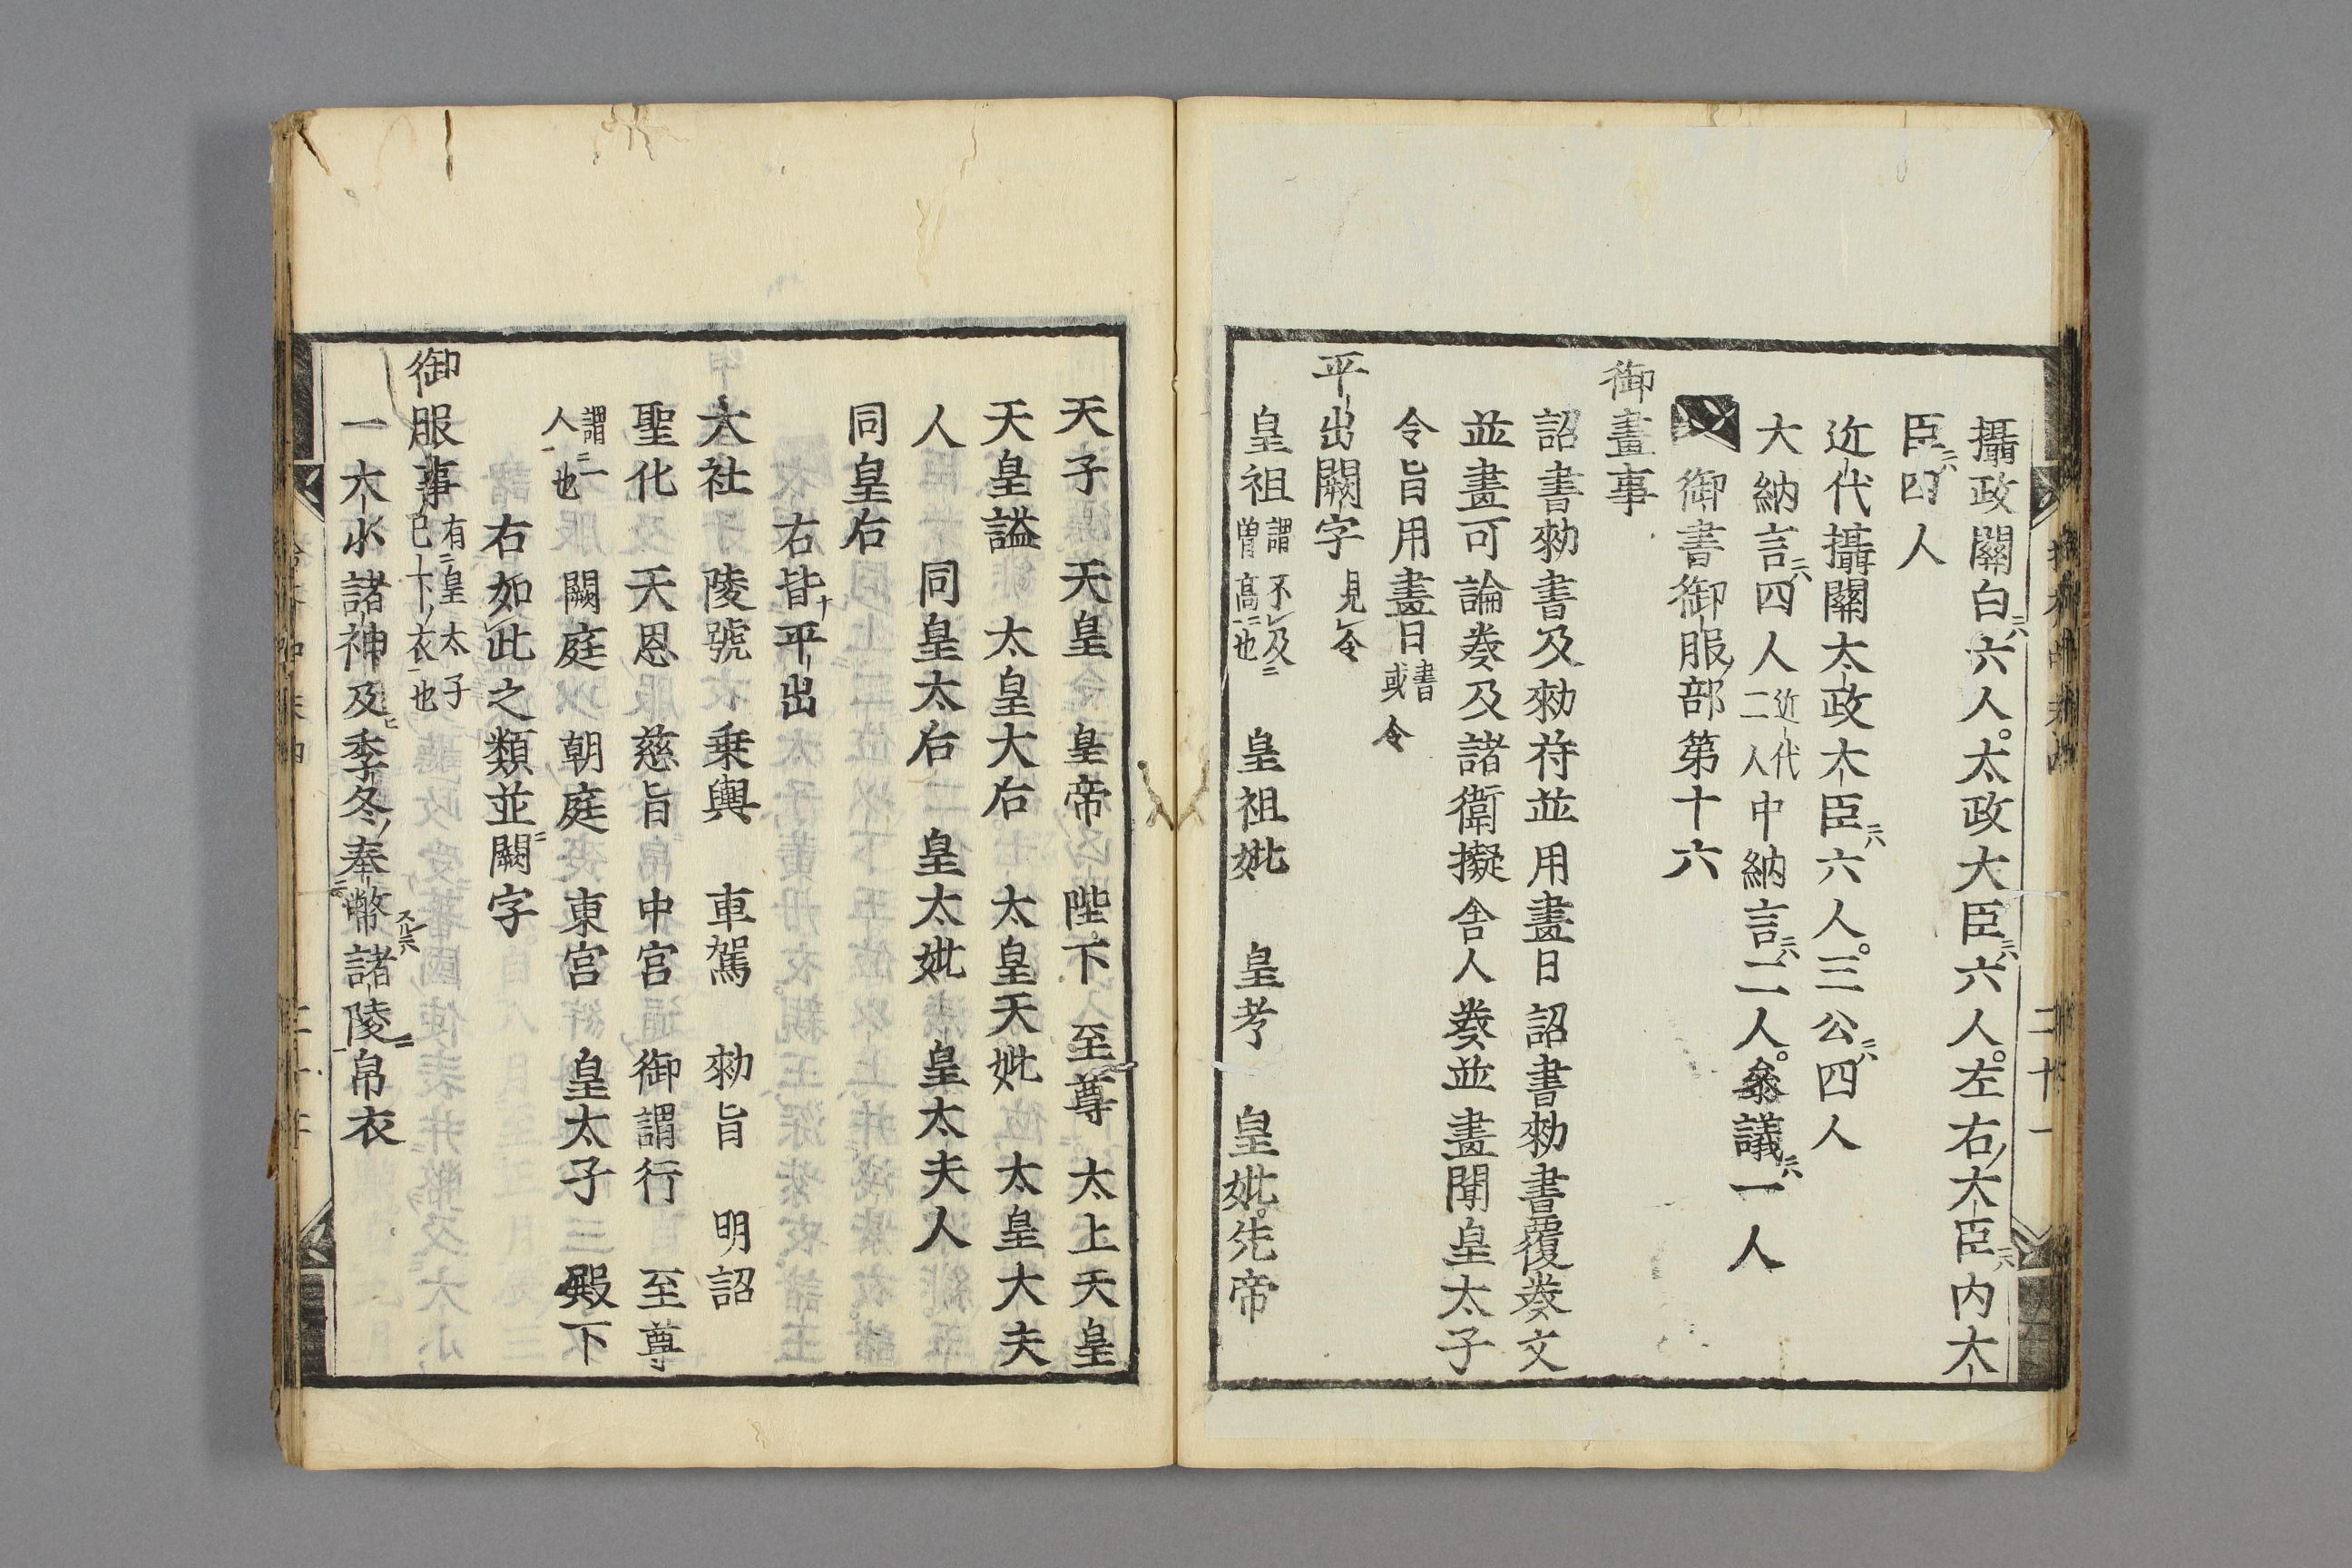 攝政關白六人。太政大臣六人。左右大臣内大
臣四人
近代攝關太政大臣六人。三公四人
大納言四人近代二人中納言二人。参議一人
御書御服部第十六
御畫事
詔書勑書及勑符並用畫日詔書勑書覆奏文
並畫可論奏及諸衛擬舎人奏並畫聞皇太子
令旨用畫日或書令
平出闕字見令
皇祖謂不及曽高也　皇祖妣　皇考　皇妣先帝
天子　天皇　皇帝　陛下　至尊　太上天皇
天皇謚　太皇大后　太皇天妣　太皇大夫
人　同皇太后　皇太妣　皇太夫人
同皇后
右皆平出
大社　陵號　乗輿　車駕　勑旨　明詔
聖化　天恩　慈旨　中宮　御謂行　至尊
謂一人也　闕庭　朝庭　東宮　皇太子　殿下
右如此之類並闕字
御服事有皇太子已下衣也
一大小諸神及季冬奉幣諸陵帛衣
二十一